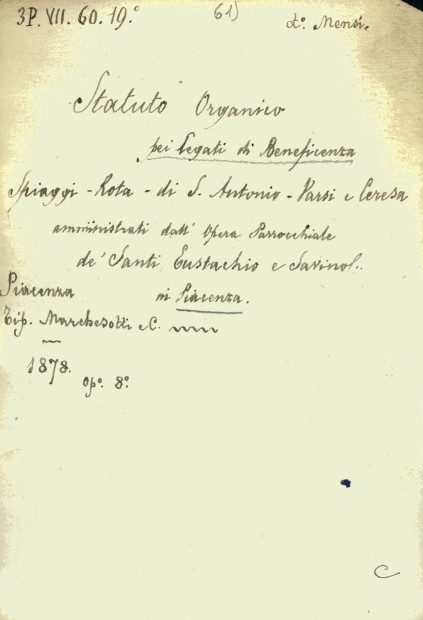 3P. VII. 60. 19.° 61) d°. Mensi.
Statuto Organico
pei Legati di Beneficenza
Spiaggi - Rota - di S. Antonio - Varsi e Ceresa
amministrati dall' Opera Parrocchiale
de' Santi Eustachio e Savino
in Piacenza.
Piacenza
Tip. Marchesotti e C.
1878.
op°. 8°.
C